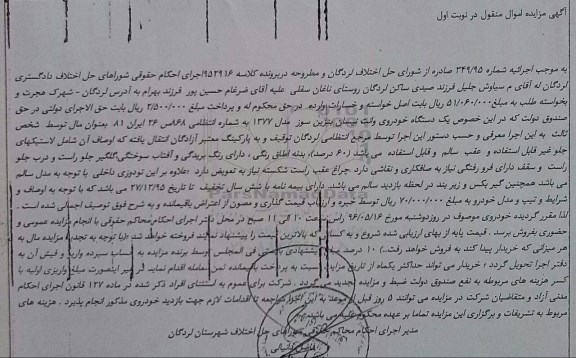 آگهی مزایده اموال منقول در نوبت اول
به موجب اجرائیه شماره ۳۴۹/۹۵ صادره از شورای حل اختلاف لردگان و مطروحه درپرونده کلاسه ۹۵۲۹۱۶اجرای احکام حقوقی شوراهای حل اختلاف دادگستری
لردگان له آقای م سیاوش جلیل فرزند صیدی ساکن لردگان روستای ناغان سفلی علیه آقای ضرغام حسین پور فرزند بهرام به آدرس لردگان - شهرک هجرت و
بخواسته طلب به مبلغ ۵۱/۰۶۰/۰۰۰ ریال بابت اصل خواسته و خسارات وارده در حق محکوم له و پرداخت مبلغ ۲/۵۰۰/۰۰۰ ریال بابت حق الاجرای دولتی در حق
صندوق دولت که در این خصوص یک دستگاه خودروی وانت نیسان بنزین سوز مدل ۱۳۷۷ به شماره انتظامی ۸۶۸ص۲۶ ایران ۸۱ بعنوان مال توسط شخص
ثالث به این اجرا معرفی و حسب دستور این اجرا توسط مرجع انتظامی لردگان توقیف و به پارکینگ معتبر آزادگان انتقال یافته که اوصاف آن شامل لاستیکهای
جلو غیر قابل استفاده و عقب سالم و قابل استفاده می باشد (۶۰ درصد)، بدنه اطاق رنگی ، دارای رنگ بریدگی و آفتاب سوختگی،گلگیر جلو راست و درب جلو
راست و سقف دارای فرو رفتگی نیاز به صافکاری و نقاشی دارد چراغ عقب راست شکسته نیاز به تعویض دارد علاوه بر این تودوزی داخلی با توجه به مدل سالم
می باشد همچنین گیر بکس و زیر بند در لحظه بازدید سالم می باشد دارای بیمه نامه با شش سال تخفیف تا تاریخ ۲۷/۱۲/۹۵ می باشد که با توجه به اوصاف و
شرایط و تیپ و مدل خودرو به مبلغ ۷۰/۰۰۰/۰۰۰ ریال توسط خبره و ارزیاب قیمت گذاری و مصون از اعتراض باقیمانده و به شرح فوق توصیف اجمالی شده است .
لذا مقرر گردیده خودروی موصوف در روزدوشنبه مورخ ۹۶/۰۵/۱۶ راس ساعت ۱۰ الی ۱۱ صبح در محل دفتر اجرای احکام محاکم حقوقی با انجام مزایده عمومی و
حضوری بفروش برسد . قیمت پایه از بهای ارزیابی شروع و به کسانی که بالاترین قیمت را پیشنهاد نمایند فروخته خواهد شد (با توجه به تجدید مزایده مال به
هر میزانی که خریدار پیدا کند به فروش خواهد رفت..) ۱۰ درصد بهای پیشنهادی بایستی فی المجلس توسط برنده مزایده به حساب سپرده واریز و فیش آن به
دفتر اجرا تحویل گردد ؛ خریدار می تواند حداکثر یکماه از تاریخ مزایده نسبت به پرداخت باقیمانده ثمن معامله اقدام نماید در غیر اینصورت مبلغ واریزی اولیه با
کسر هزینه های مربوطه به نفع صندوق دولت ضبط و مزایده تجدید می گردد . شرکت برای عموم به استثنای افراد ذکر شده در ماده ۱۲۷ قانون اجرای احکام
مدنی آزاد و متقاضیان شرکت در مزایده می توانند ۵ روز قبل از موعد به این اجرا مراجعه تا اقدامات لازم جهت بازدید خودروی مذکور انجام پذیرد . هزینه های
مربوط به تشریفات و برگزاری این مزایده تماما بر عهده محکوم علیه می باشد.
مدیر اجرای احکام محاکم حقوقی شوراهای حل اختلاف شهرستان لردگان